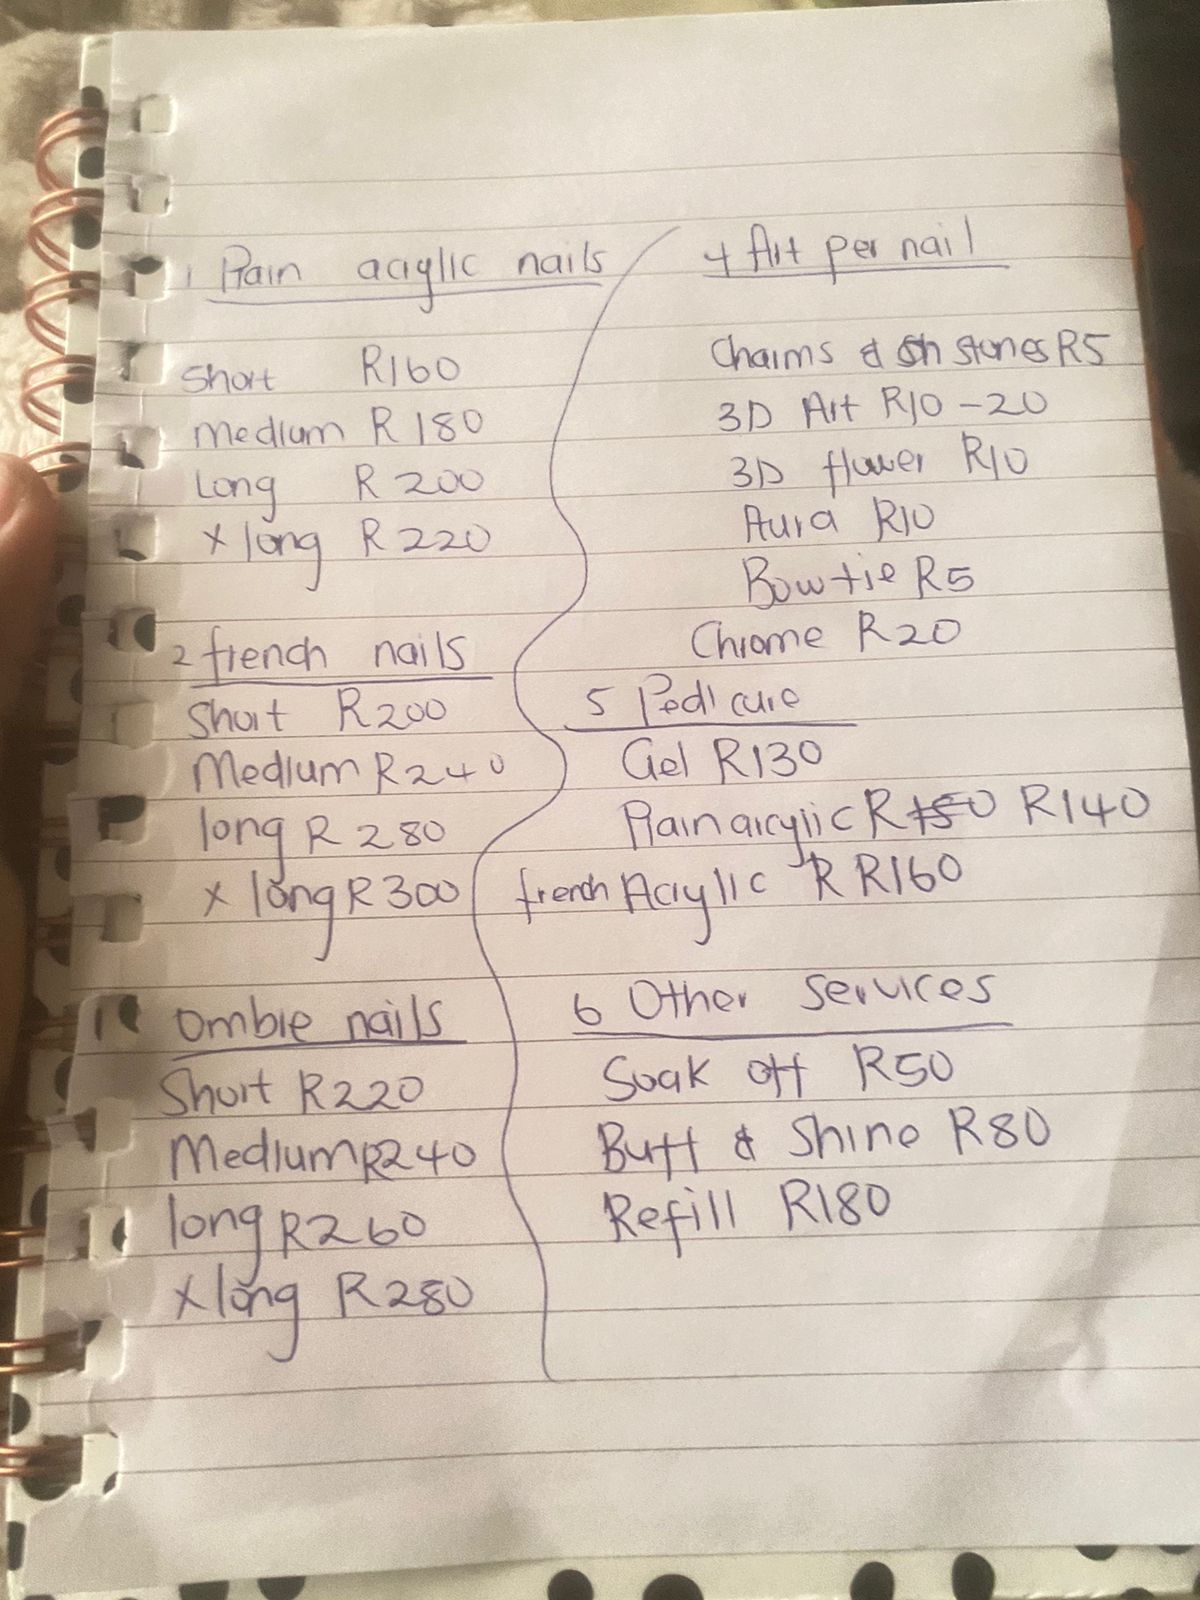 1 Plain acrylic nails
Short R160
Medium R180
Long R200
x long R220
2 french nails
Short R200
Medium R240
long R280
x long R300
Ombre nails
Short R220
Medium R240
long R260
x long R280
4 Art per nail
Charms & stones R5
3D Art R10-20
3D flower R10
Aura R10
Bowtie R5
Chrome R20
5 Pedicure
Gel R130
Plain acrylic R150 R140
french Acrylic R R160
6 Other services
Soak off R50
Buff & Shine R80
Refill R180